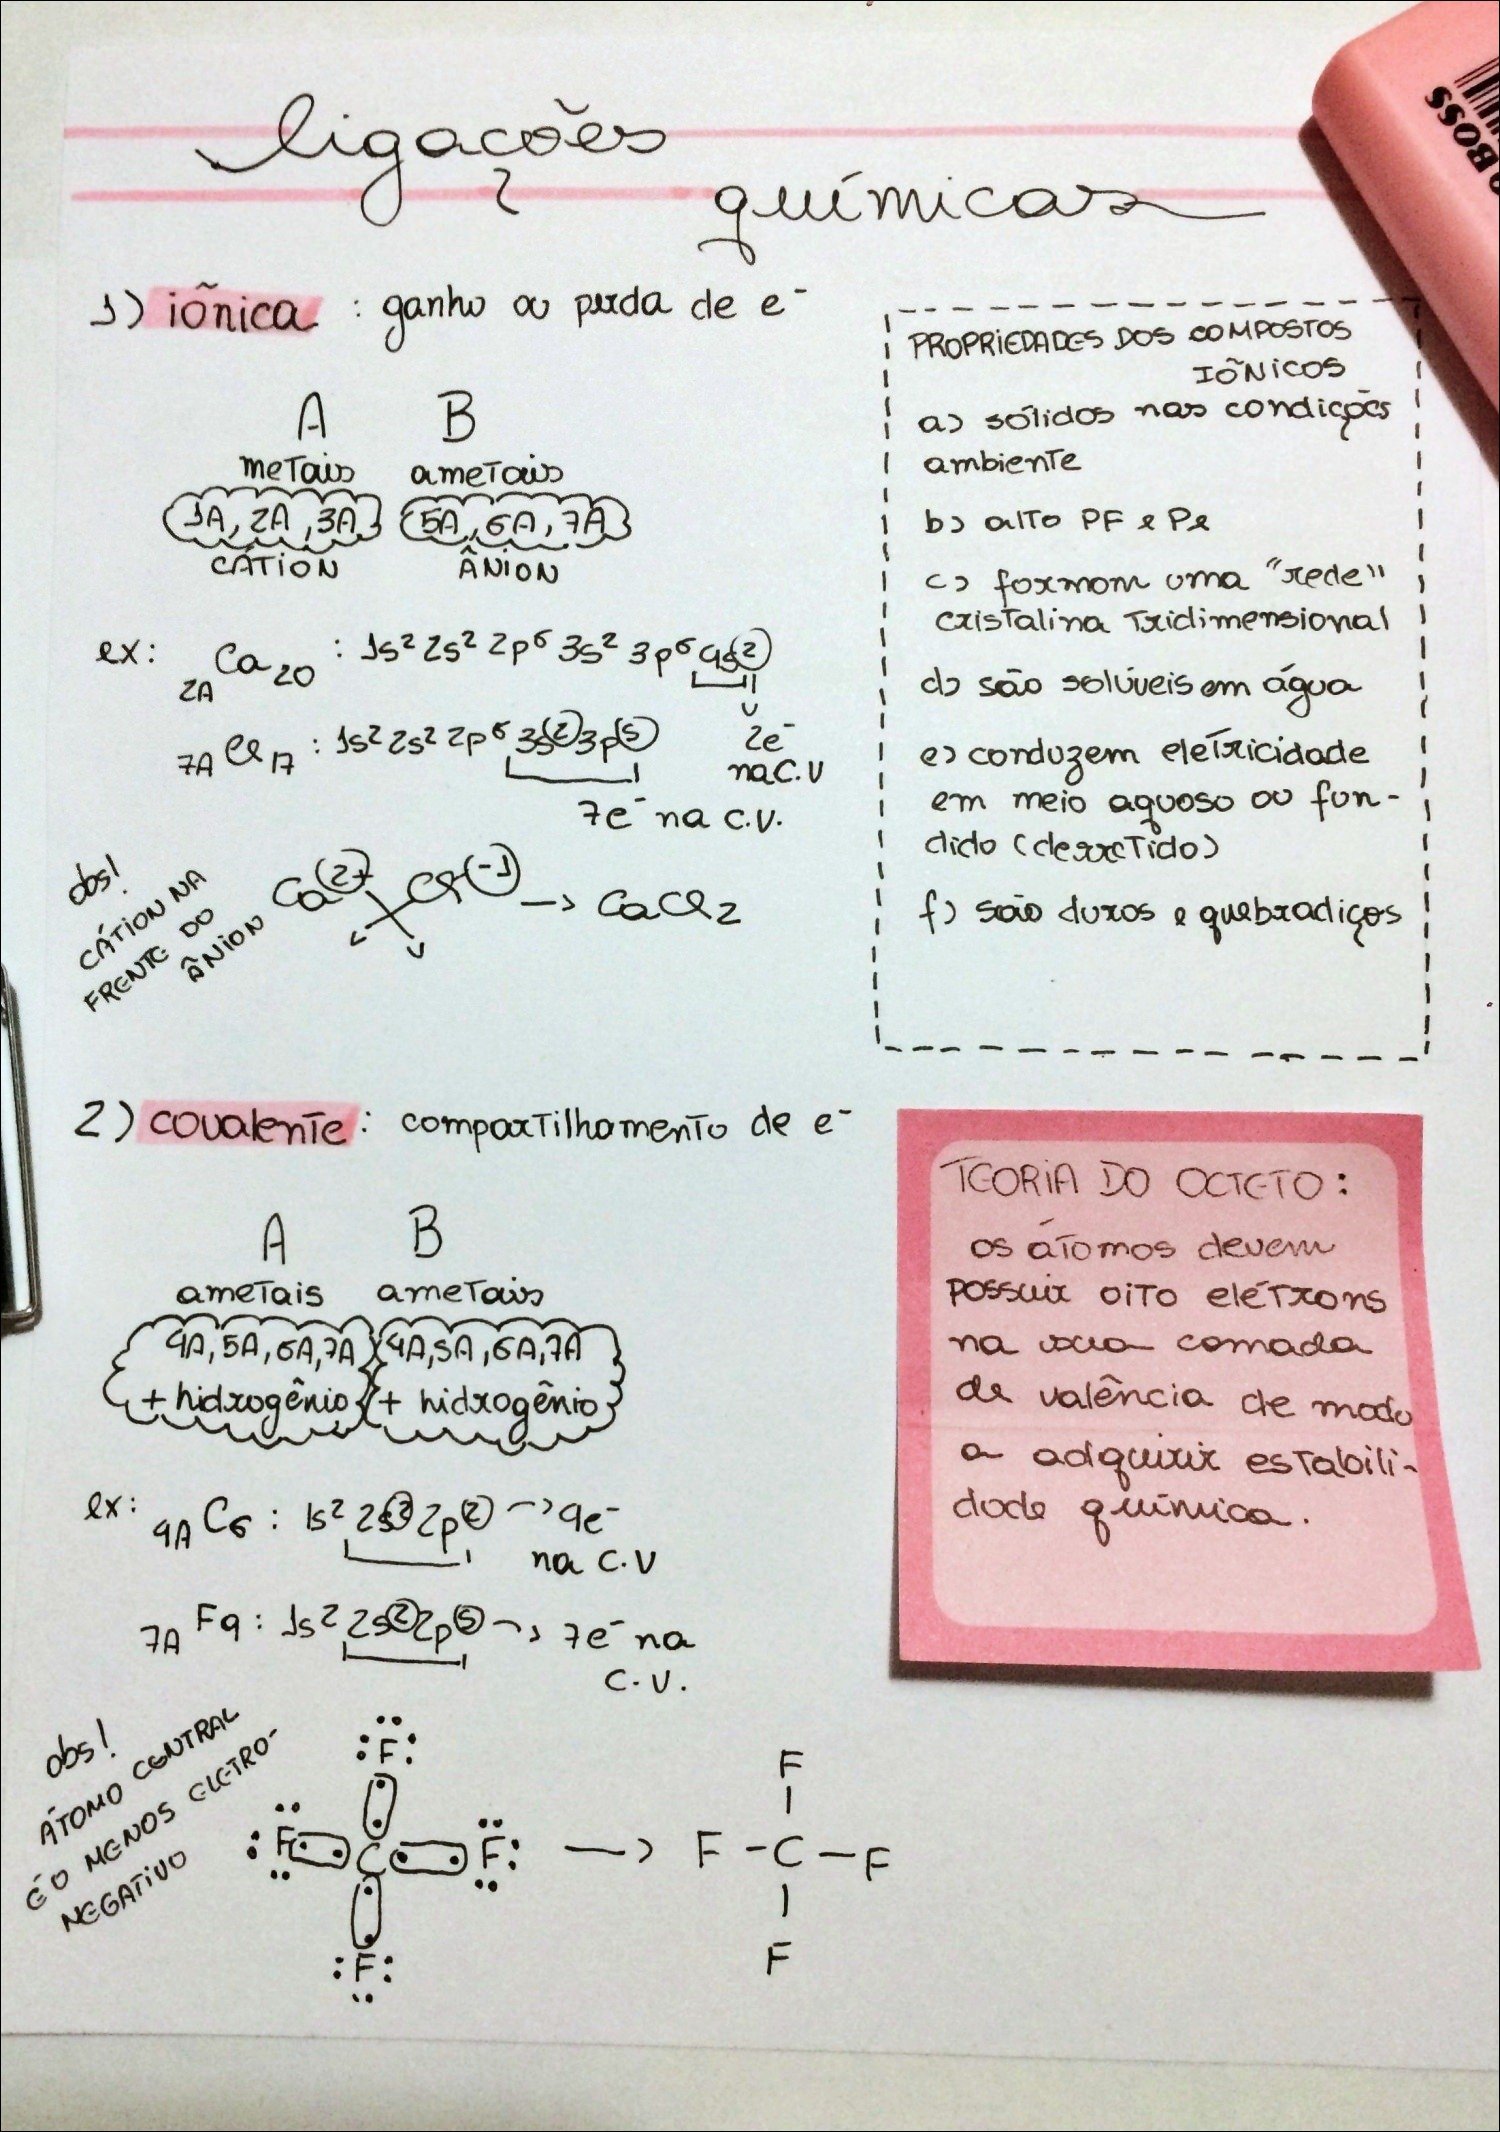 ligações
químicas
1) iônica : ganho ou perda de e⁻
A B
metais ametais
1A, 2A, 3A 5A, 6A, 7A
CÁTION ÂNION
ex: 2A Ca 20 : 1s² 2s² 2p⁶ 3s² 3p⁶ 4s²
2e⁻
na C.V
7A Cl 17 : 1s² 2s² 2p⁶ 3s² 3p⁵
7e⁻ na C.V.
obs!
CÁTION NA
FRENTE DO
ÂNION
Ca 2+ Cl -1 → CaCl2
PROPRIEDADES DOS COMPOSTOS
IÔNICOS
a) sólidos nas condições
ambiente
b) alto PF e Pe
c) formam uma "rede"
cristalina tridimensional
d) são solúveis em água
e) conduzem eletricidade
em meio aquoso ou fun-
dido (derretido)
f) são duros e quebradiços
2) covalente : compartilhamento de e⁻
A B
ametais ametais
4A, 5A, 6A, 7A 4A, 5A, 6A, 7A
+ hidrogênio + hidrogênio
ex: 4A C6 : 1s² 2s² 2p² → 4e⁻
na C.V
7A F9 : 1s² 2s² 2p⁵ → 7e⁻ na
C.V.
obs!
ÁTOMO CENTRAL
É O MENOS ELETRO-
NEGATIVO
F
F C F
F
→
F
F - C - F
F
TEORIA DO OCTETO :
os átomos devem
possuir oito elétrons
na sua camada
de valência de modo
a adquirir estabili-
dade química.
BOSS